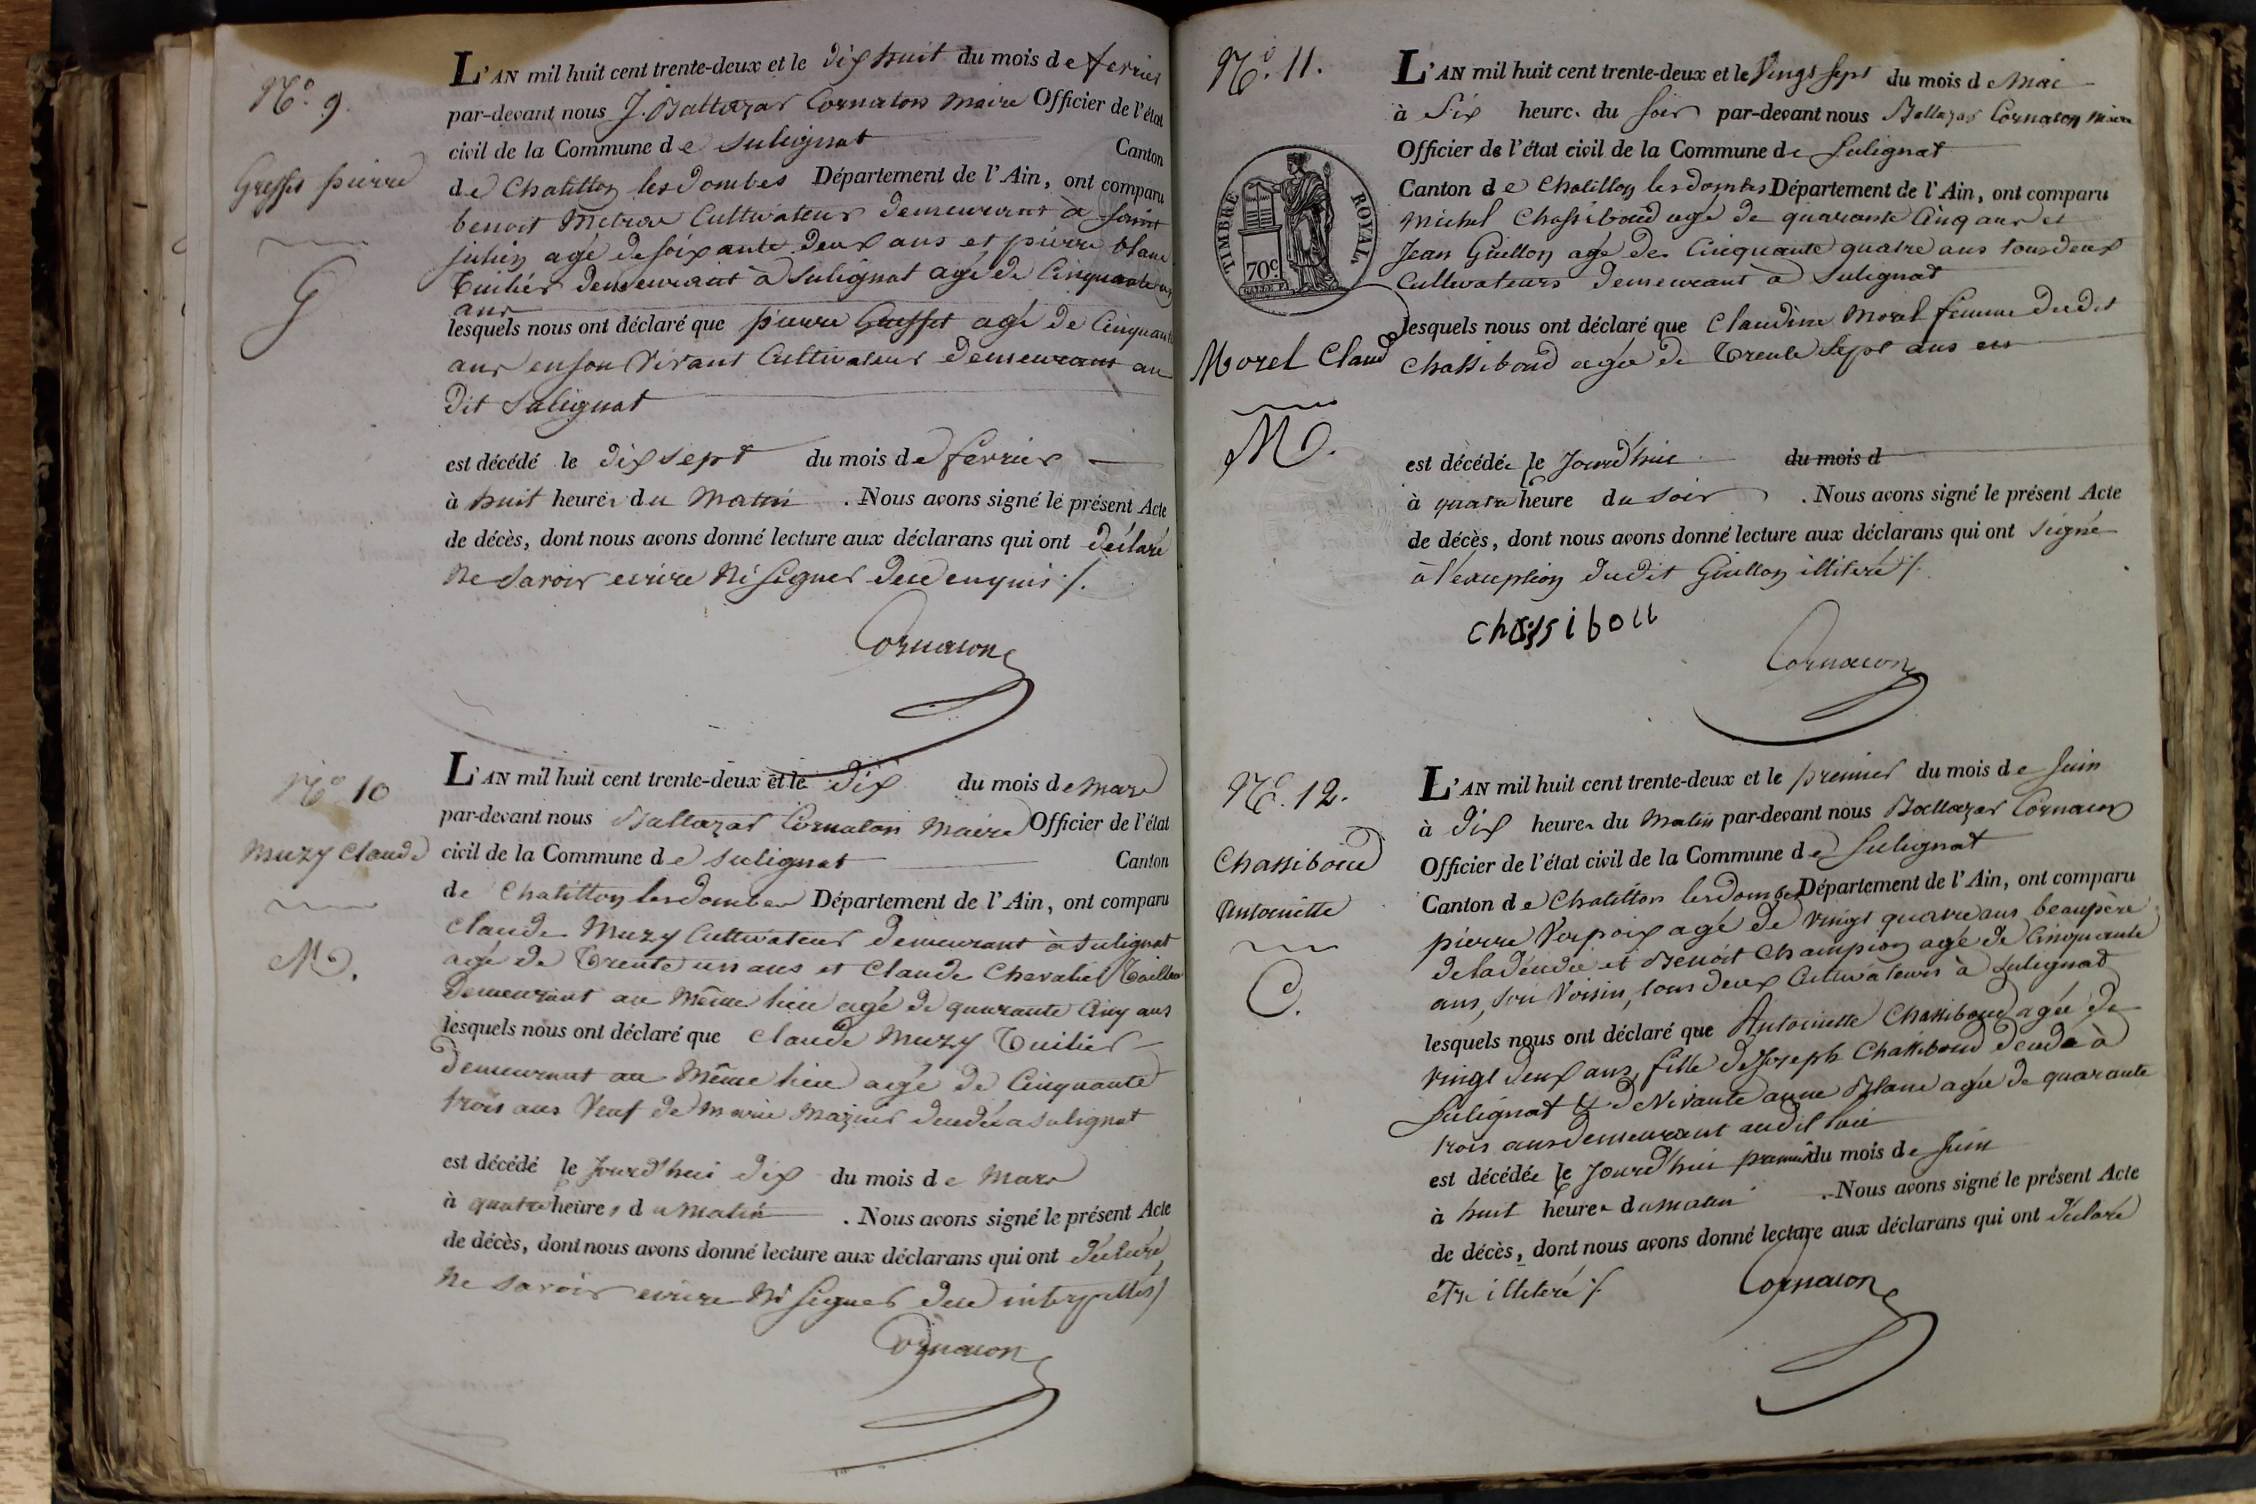 N.o 9.
Greffet pierre
G
L'AN mil huit cent trente-deux et le dix huit du mois de fevrier
par-devant nous J. Baltazar Cornaton Maire Officier de l'état
civil de la Commune de Sulignat Canton
de Chatillon les dombes Département de l'Ain, ont comparu
benoit Cultivateur demeurant à saint
julien agé de soixante deux ans et pierre blanc
Tuilier demeurant à Sulignat agé de Cinquante
ans
lesquels nous ont déclaré que pierre Greffet agé de Cinquante
ans en son Vivant Cultivateur demeurant au
dit Sulignat
est décédé le dix sept du mois de fevrier
à huit heures du Matin . Nous avons signé le présent Acte
de décès, dont nous avons donné lecture aux déclarans qui ont déclaré
Ne Savoir ecrire Ni Signer de ce enquis /.
Cornaton
N.o 10
Muzy Claude
M.
L'AN mil huit cent trente-deux et le dix du mois de Mars
par-devant nous Baltazar Cornaton Maire Officier de l'état
civil de la Commune de Sulignat Canton
de Chatillon les dombes Département de l'Ain, ont comparu
Claude Muzy Cultivateur demeurant à Sulignat
agé de Trente un ans et Claude Chevalier Tailleur
demeurant au Même lieu agé de quarante Cinq ans
lesquels nous ont déclaré que Claude Muzy Tuilier
demeurant au Même lieu agé de Cinquante
trois ans Veuf de Marie Mazuir decedée a Sulignat
est décédé le Jourd'hui dix du mois de Mars
à quatre heures du Matin . Nous avons signé le présent Acte
de décès, dont nous avons donné lecture aux déclarans qui ont déclaré
Ne Savoir ecrire Ni Signer de ce interpellés /
Cornaton
N.o 11.
TIMBRE ROYAL
70c.
Morel Claudine
M.
L'AN mil huit cent trente-deux et le Vingt Sept du mois de Mai
à Six heure. du Soir par-devant nous Baltazar Cornaton Maire
Officier de l'état civil de la Commune de Sulignat
Canton de Chatillon les dombes Département de l'Ain, ont comparu
Michel Chassiboud agé de quarante Cinq ans et
Jean Guillon agé de Cinquante quatre ans tous deux
Cultivateurs demeurant à Sulignat
lesquels nous ont déclaré que Claudine Morel femme dudit
Chassiboud agée de Trente Sept ans en
est décédée le Jourd'hui du mois d
à quatre heure du Soir . Nous avons signé le présent Acte
de décès, dont nous avons donné lecture aux déclarans qui ont Signé
à l'exception dudit Guillon illitéré /.
chassibou
Cornaton
N.o 12.
Chassiboud
Antoinette
C.
L'AN mil huit cent trente-deux et le premier du mois de Juin
à dix heures du Matin par-devant nous Baltazar Cornaton
Officier de l'état civil de la Commune de Sulignat
Canton de Chatillon les dombes Département de l'Ain, ont comparu
pierre Verpoix agé de Vingt quatre ans beaupère
de la décédée et Benoit Champion agé de Cinquante
ans, son Voisin, tous deux Cultivateurs à Sulignat
lesquels nous ont déclaré que Antoinette Chassiboud agée de
Vingt deux ans, fille de Joseph Chassiboud décédé à
Sulignat & de Vivante anne Blanc agée de quarante
trois ans demeurant audit lieu
est décédée le Jourd'hui premier du mois de Juin
à huit heures du Matin . Nous avons signé le présent Acte
de décès, dont nous avons donné lecture aux déclarans qui ont déclaré
être illiteré /.
Cornaton